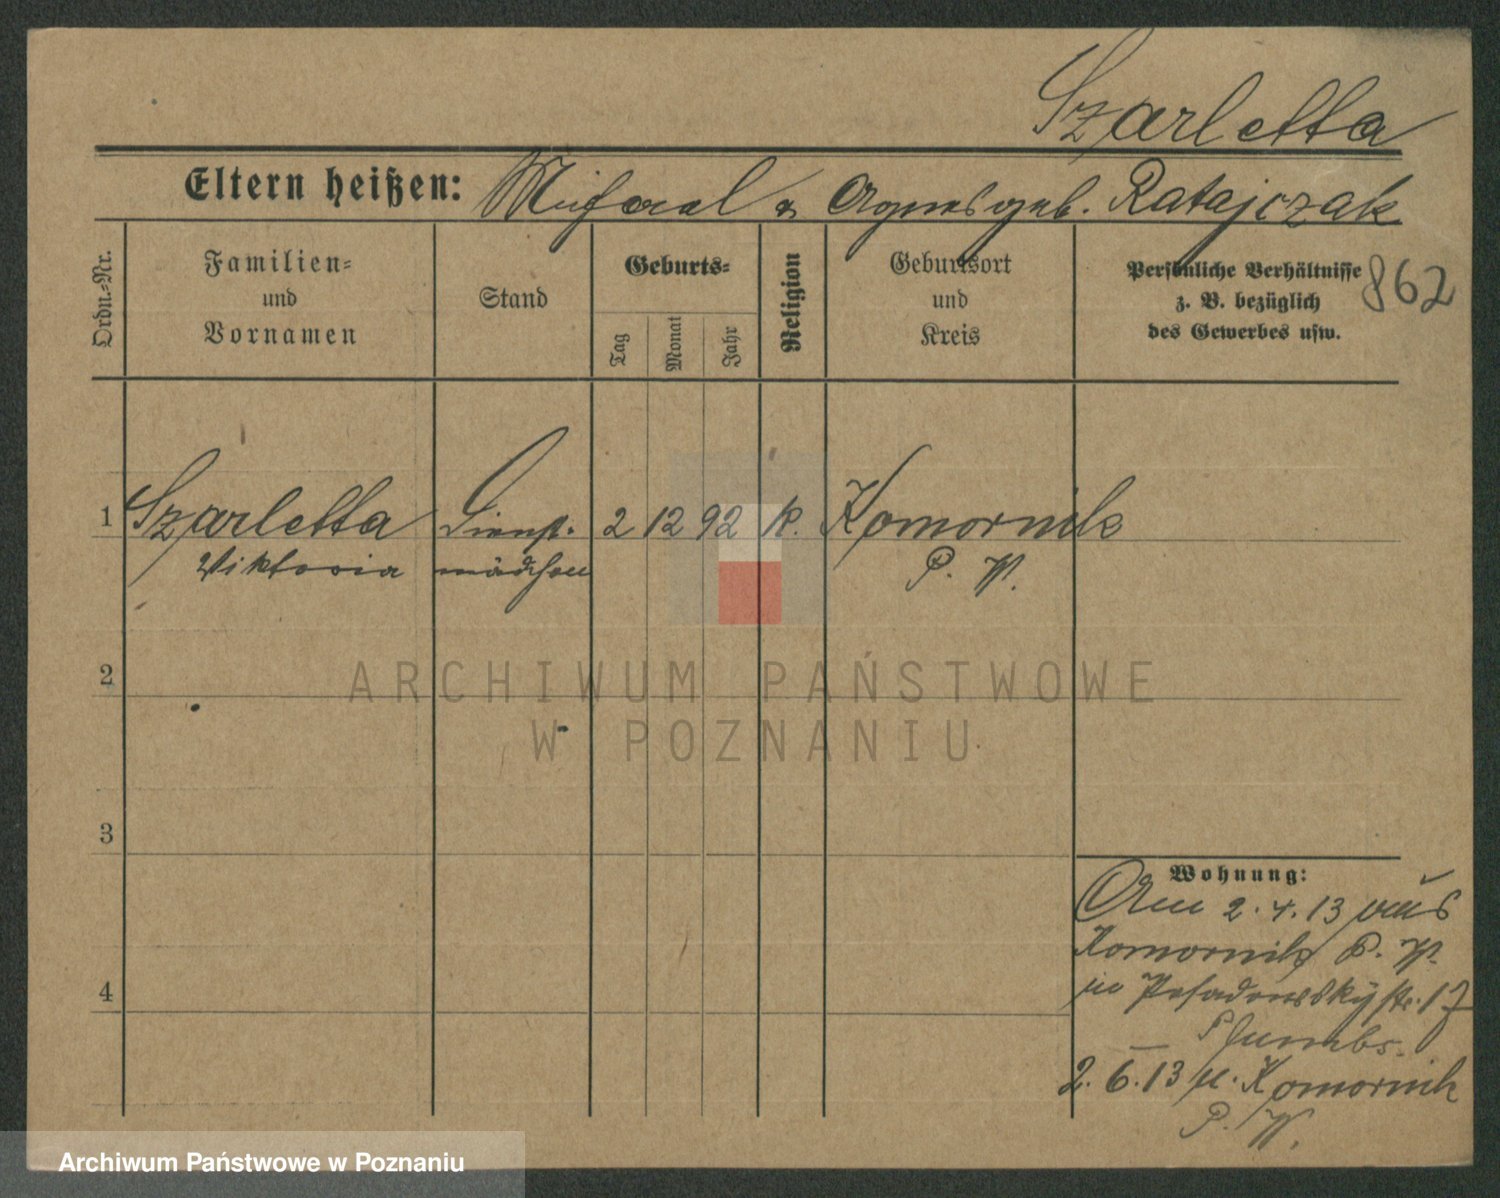 Szarletta
Eltern heißen: Michael & Agnes geb. Ratajczak
Ordn.-Nr.
Familien-
und
Vornamen
Stand
Geburts-
Tag
Monat
Jahr
Religion
Geburtsort
und
Kreis
Persönliche Verhältnisse
z. B. bezüglich
des Gewerbes usw.
862
1 Szarletta Dienst- 2 12 92 k. Komornik
Viktoria mädchen P. W.
2
3
4
Wohnung:
Am 2.4.13 aus
Komornik P. W.
in Posadowskystr. 17
2.6.13 n. Komornik
P. W.
ARCHIWUM PAŃSTWOWE
W POZNANIU
Archiwum Państwowe w Poznaniu